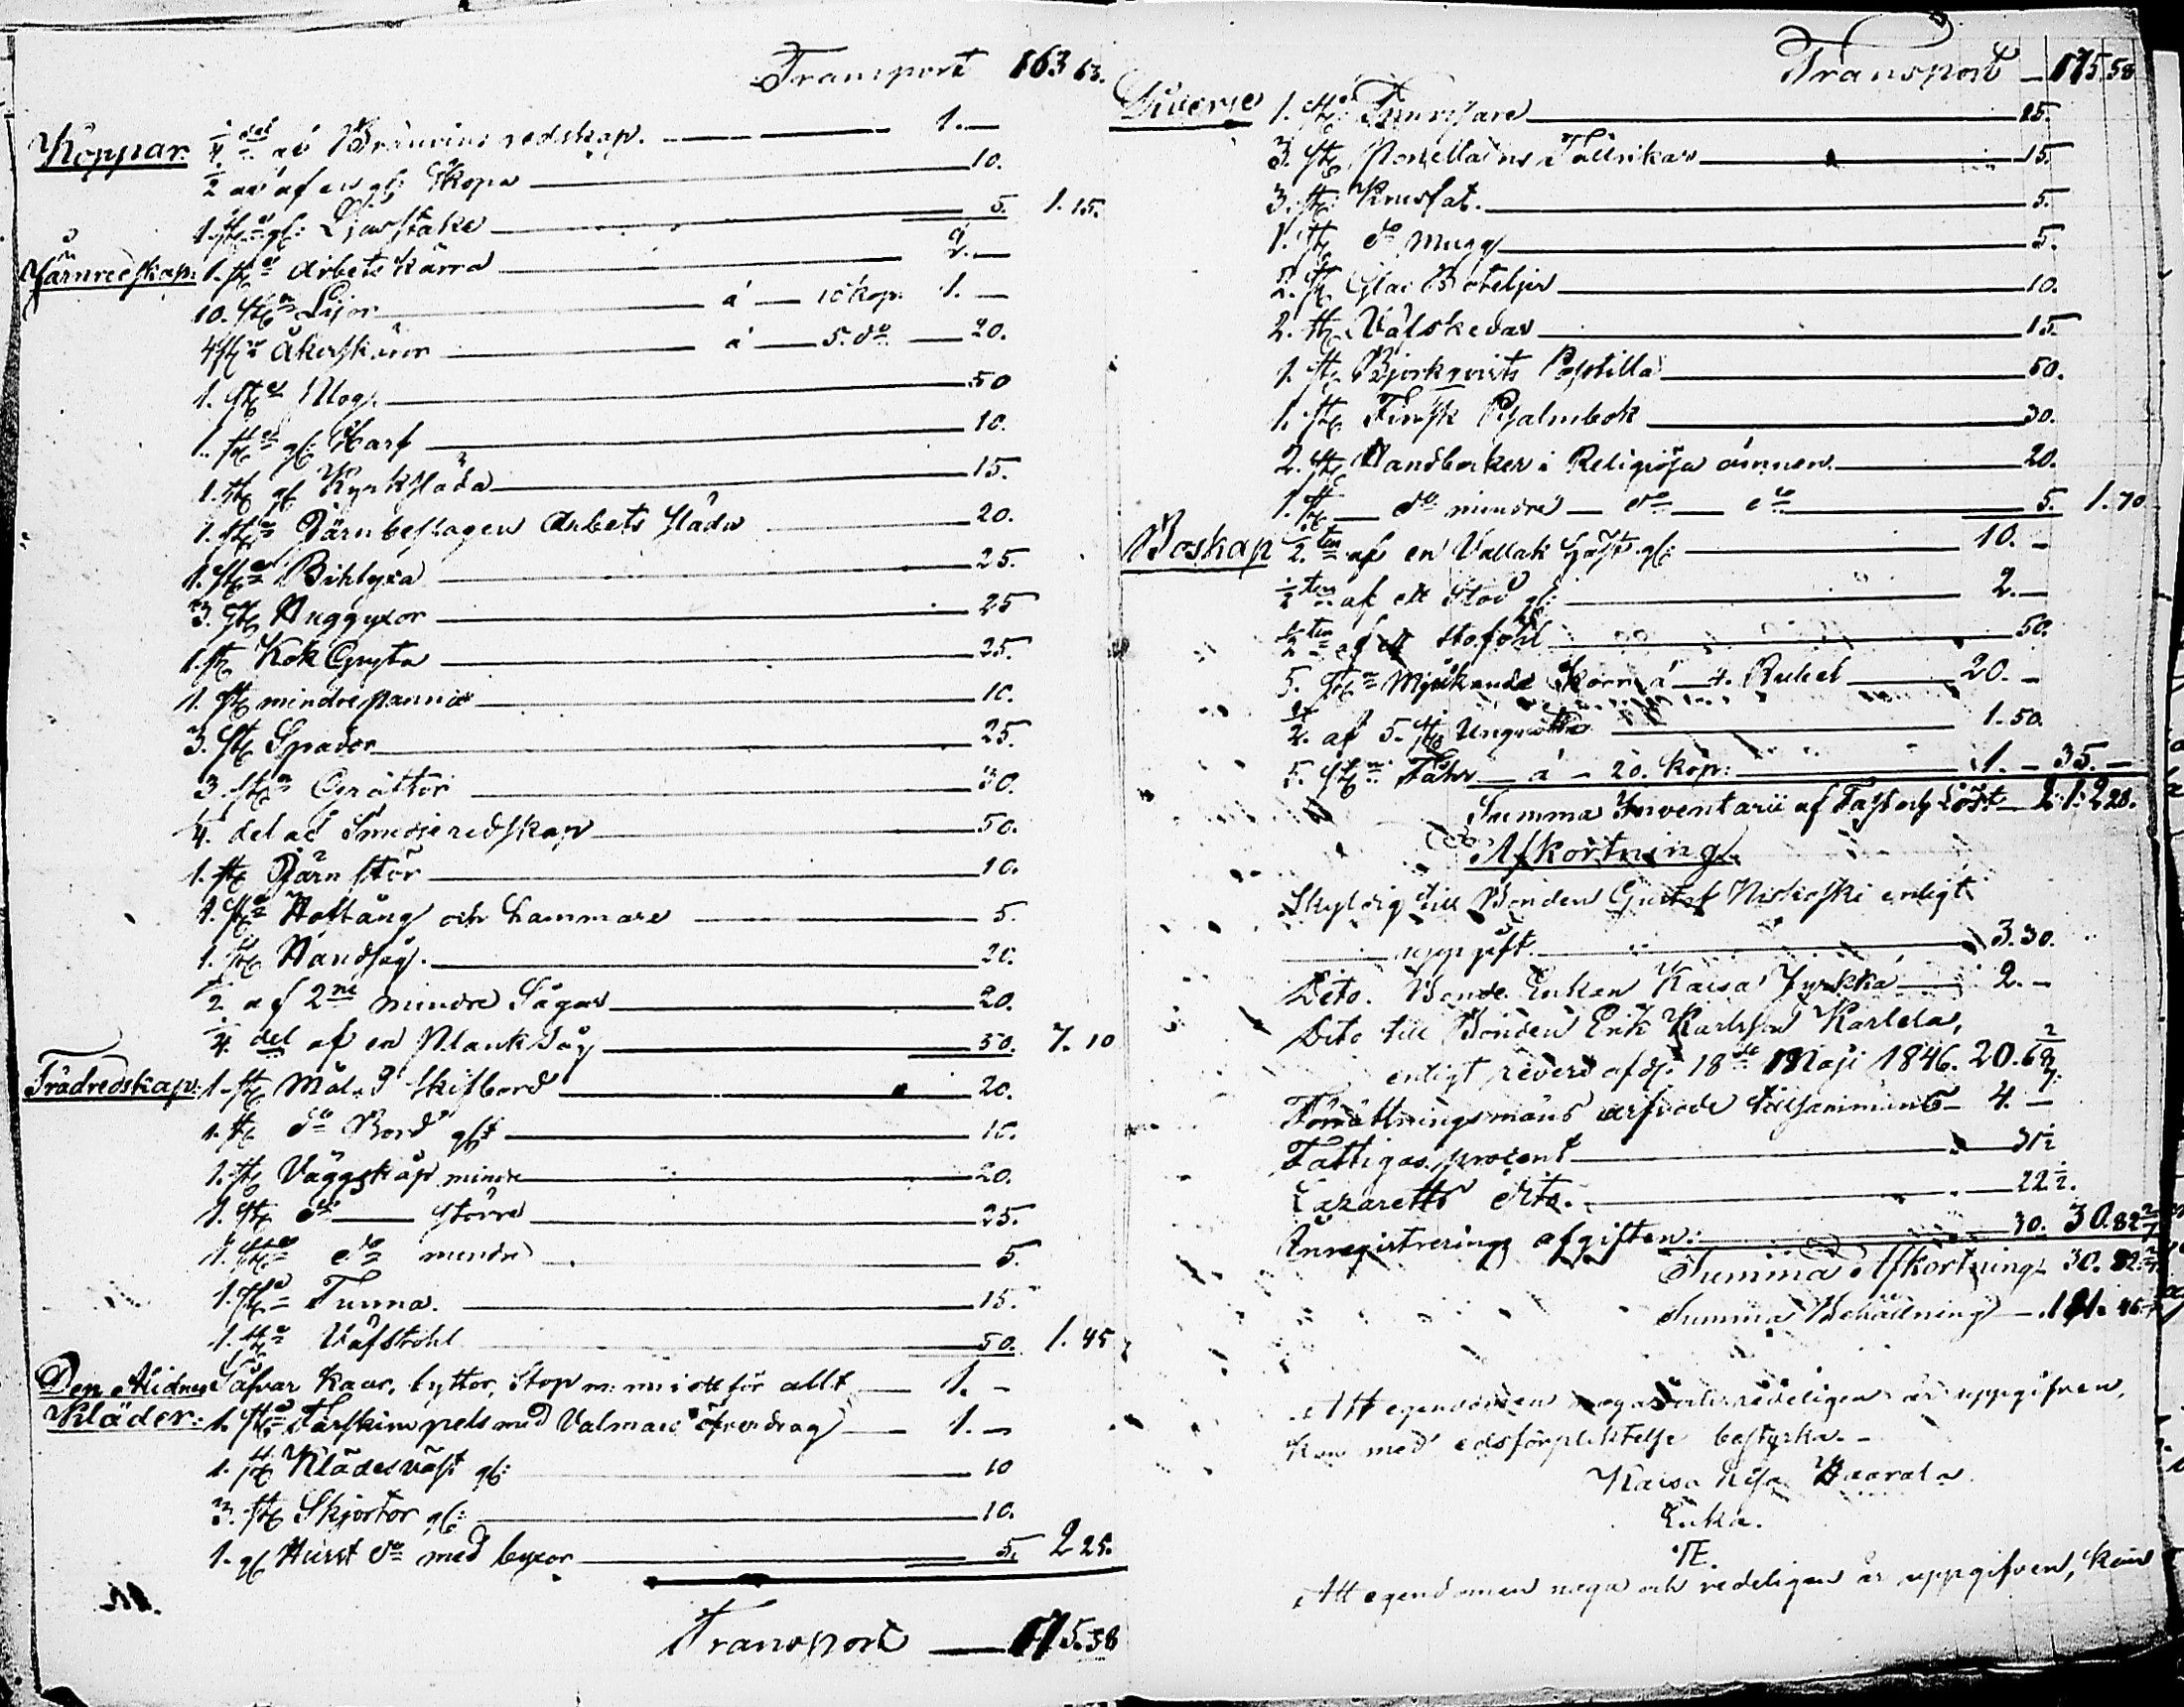 Transport 163 63.
Koppar. 1/4 del av Bränvins redskap. 1.—
1/2 af en gl: Skopa 10.
1. st. gl: Ljusstake 5. 1. 15.
Järnredskap: 1. st. Arbets kärra 2.—
10. st. Lijor á 10 kop. 1.—
4 st. Åkerskäror á 5. do 20.
1. st. Plog. 50
1. st. gl: Harf 10.
1. st. gl Kyrksläda 15.
1. st. Järnbeslagen Arbets släda 20.
1. st. Bihlyxa 25.
3. st. Huggyxor 25
1. st. Kok Gryta 25.
1. st. mindre panna 10.
3. st. Spador 25.
3. st. Gräftor 30.
1/4. del af Smidjeredskap 50.
1. st. Järn stör 10.
1. st. Hoftång och hammare 5.
1. st. Handsåg. 20.
1/2 af 2ne mindre Sågar 20.
1/4. del af en Planksåg 50. 7. 10
Trädredskap: 1. st. Mål.d Skifbord 20.
1. st. do Bord glt 10.
1. st. Väggskåp mindre 20.
1. st. do större 25.
1. st. do mindre 5.
1. st. Tunna. 15.
1. st. Väfstohl 50. 1. 45
Säfvar Kaar, byttor, Stop m: m: i ett för allt 1.—
Kläder: 1. st. Fårskins pels med Valmars öfverdrag 1.—
1. st. Klädesväst gl: 10
3. st. Skjortor gl: 10.
1. gl do med byxor 5. 2 25.
Transport 175.58
Transport 175 58
Diverse 1. st. 25.
3. st. Porcellains Tallrikar 15.
3. st. Krusfat. 5.
1. st. do Mugg 5.
2. st. Glas Boteljer 10.
2. st. Väfskedar 15.
1. st. Björkqvists Postilla 50.
1. st. Finsk Psalmbok 30.
2. st. Handböcker i Religiösa ämnen 20.
1. st. do mindre do do 5. 1. 70
Boskap 1/2 ten af en Vallak häst gl: 10.—
1/2 ten af ett Sto gl: 2.—
1/2 ten af ett stoföhl 50.
5. st. Mjölkande Kor á 4. Rubel 20.—
1/2. af 5. st. Ungnöt 1.50.
5. st. Fåhr á 20. kop: 1.— 35.—
Summa Inventarii af Fast och Löst 212 28.
Afkortning
Skyldig till Bonden Gustaf enligt
uppgift. 3.30.
Dito. Bonde Enkan Kaisa Jyrkkä 2.—
Dito till Bonden Erik Karlsson Karlela,
enligt revers af d: 18de Maji 1846. 20.68 2/7
Förrättningsmäns arfvode tillsammans 4.—
Fattigas procent 31 1/2
Lazaretts dito. 22 1/2.
Inregistrerings afgiften: 30. 30.82 2/7
Summa Afkortning 30. 82 2/7
Summa Behållning 181. 45
Att egendomen noga och redeligen är uppgifven,
kan med edsförpliktelse bestyrka.
Kaisa Lisa
Enka.
Att egendomen noga och redeligen är uppgifven, kan